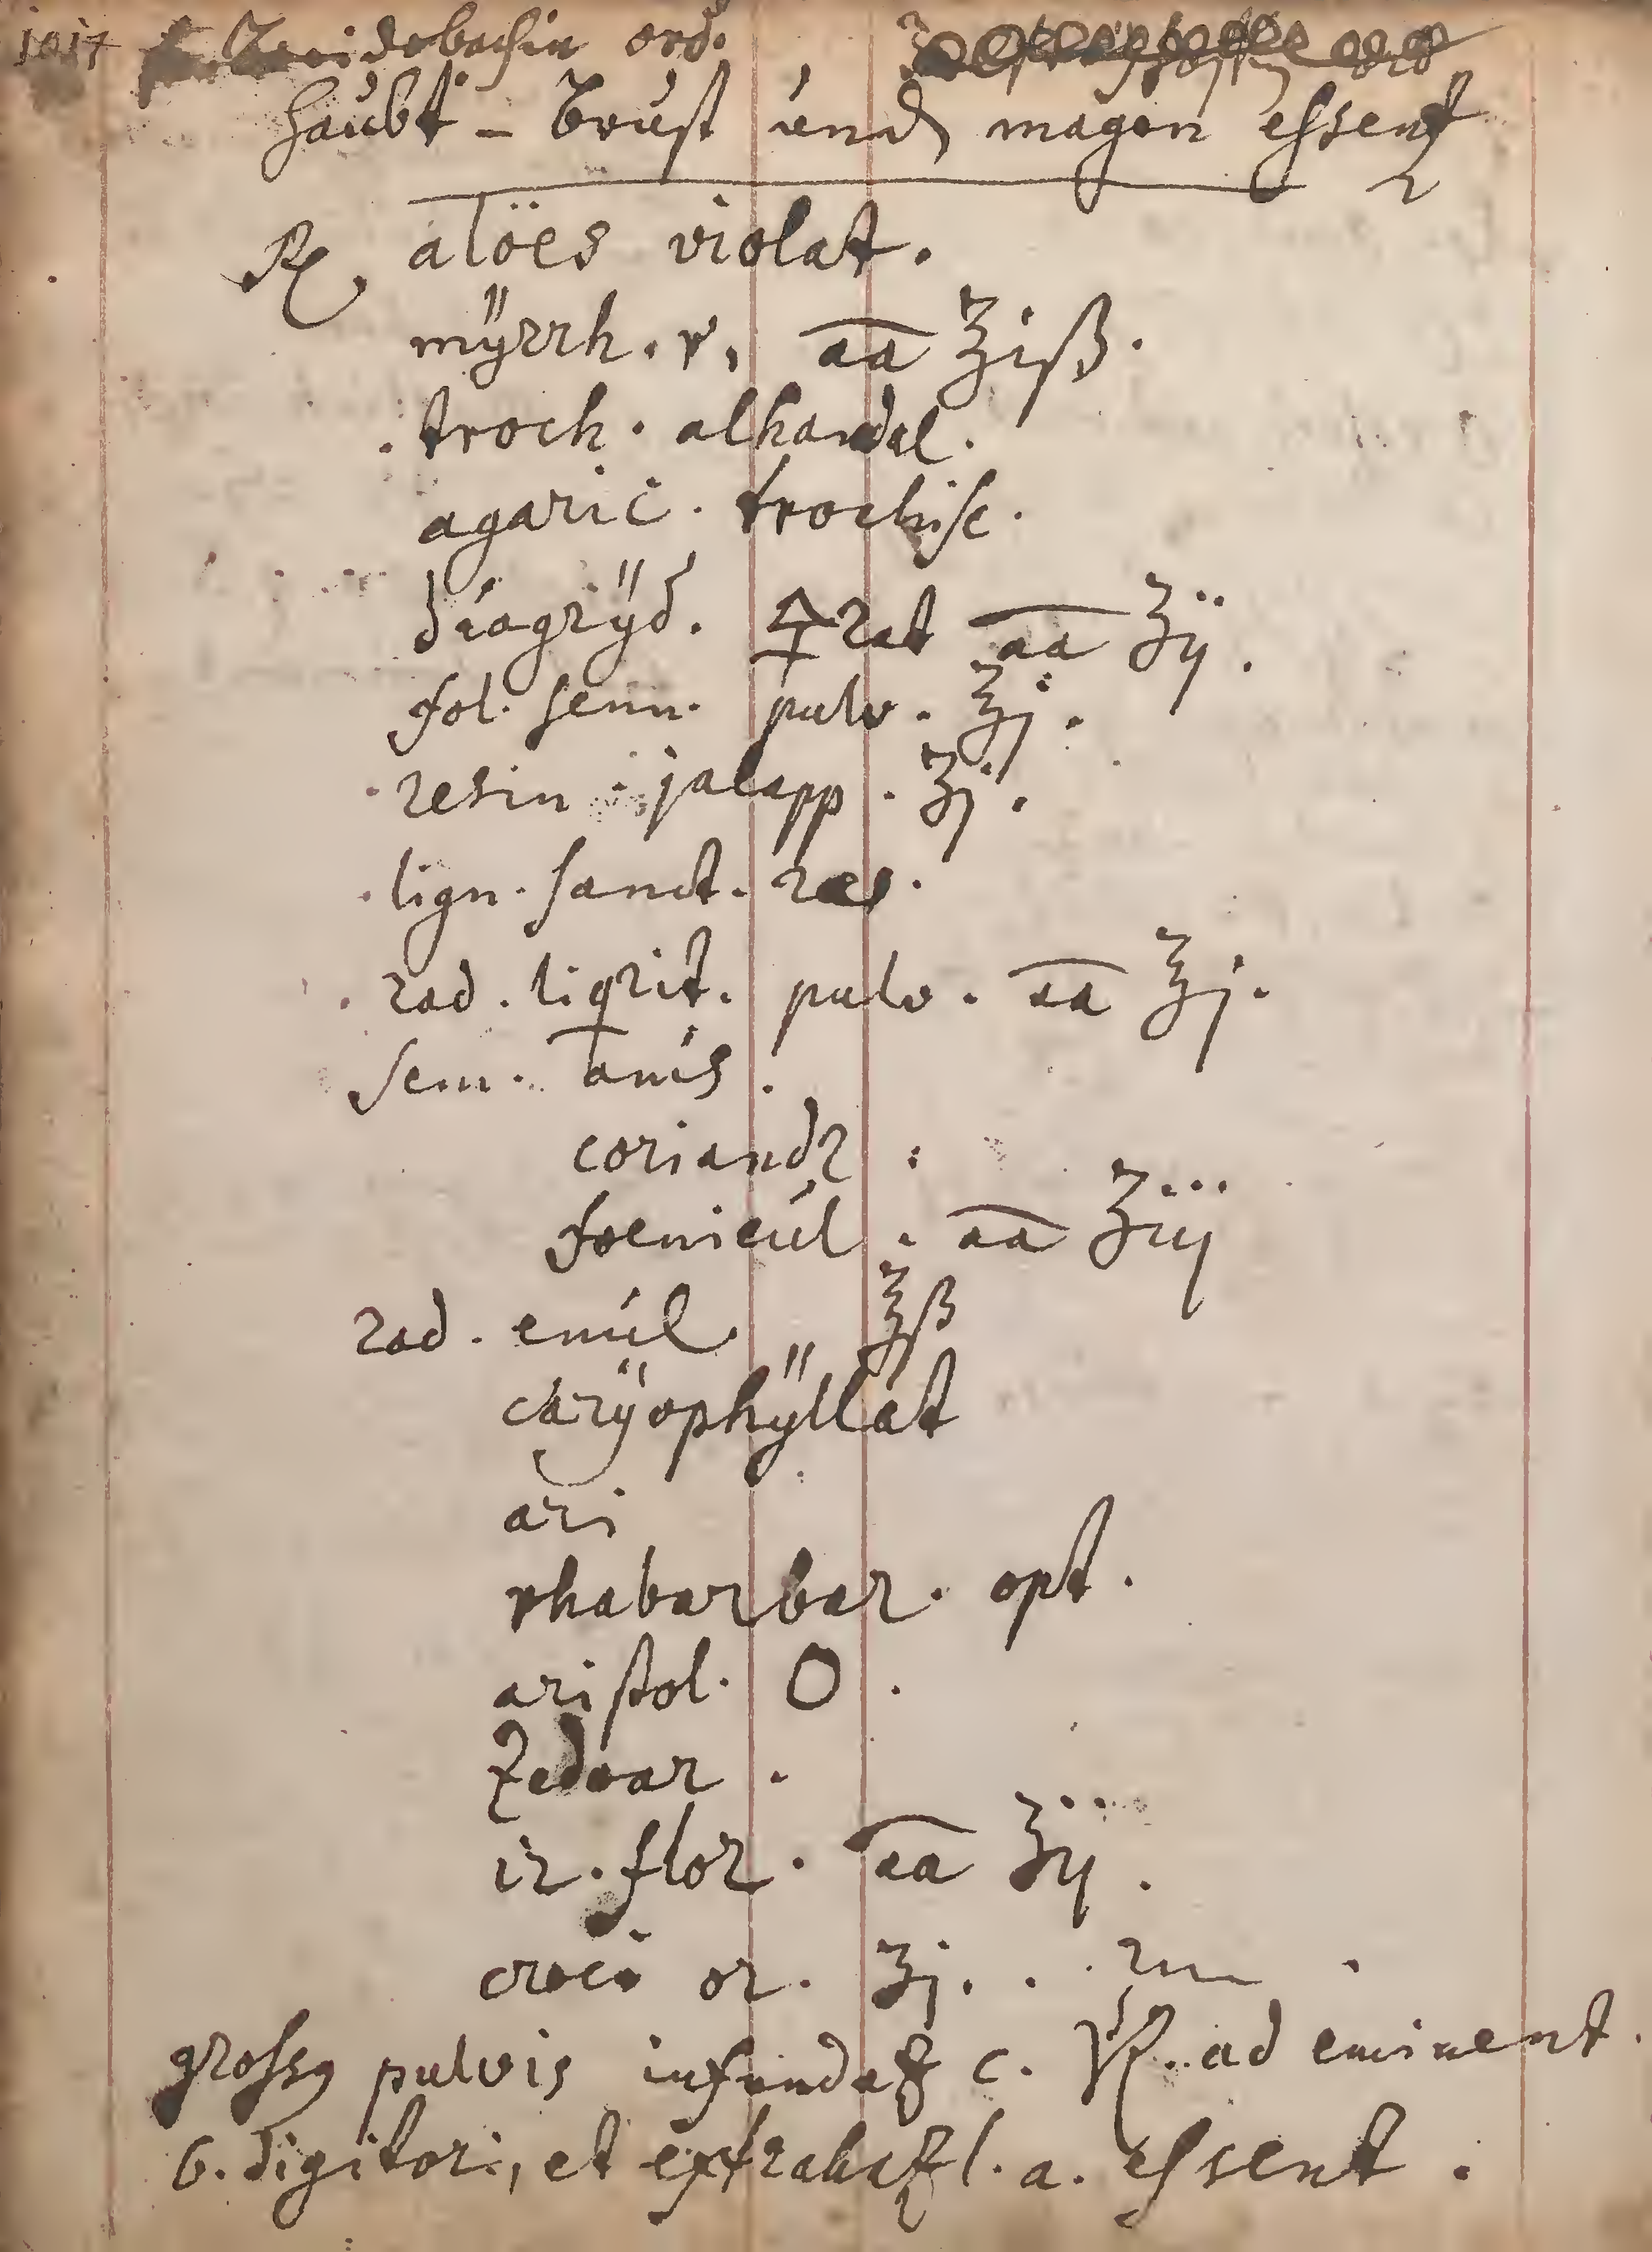 ord.
Haúbt - Brúst únd magen essent
℞. aloës violat.
mÿrrh. r. aa ℥iß.
troch. alhandal.
agaric. trochisc.
diagrÿd. 🜍rat aa ʒij.
fol. senn. pulv. ℥j.
resin. jalapp. ʒj.
lign. sanct. ras.
rad. liqrit. pulv. aa ℥j.
Sem. anis.
coriandr.
foenicúl. aa ʒiij
rad. enúl. ℥ß
carÿophÿllat
ari
rhabarbar. opt.
aristol. O.
Zedoar.
ir. flor. aa ʒij.
croci or. ʒj.
grossq pulvis infundat~ c. ad eminent.
6. digitor, et extrahat~ l. a. essent.